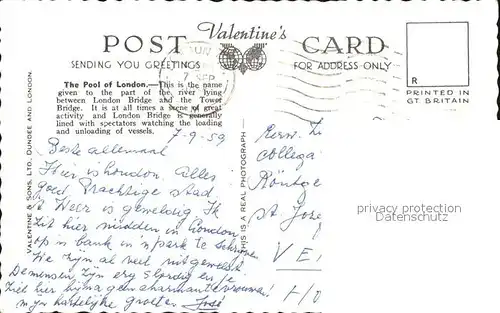 Valentine's
POST CARD
SENDING YOU GREETINGS
FOR ADDRESS ONLY
R
PRINTED IN
GT BRITAIN
7 SEP
The Pool of London.—This is the name
given to the part of the river lying
between London Bridge and the Tower
Bridge. It is at all times a scene of great
activity and London Bridge is generally
lined with spectators watching the loading
and unloading of vessels.
VALENTINE & SONS, LTD., DUNDEE AND LONDON.
THIS IS A REAL PHOTOGRAPH
7-9-59
Beste allemaal
Hier is London. Alles
goed. Prachtige stad.
Weer is geweldig. Ik
zit hier midden in London
op 'n bank in 'n park te schrijven
We zijn al veel uitgeweest.
De mensen zijn erg slordig en je
ziet hier bijna geen charmante vrouwen!
m'n hartelijke groeten José
collega
Röntge
St Jose
VE
privacy protection
Datenschutz